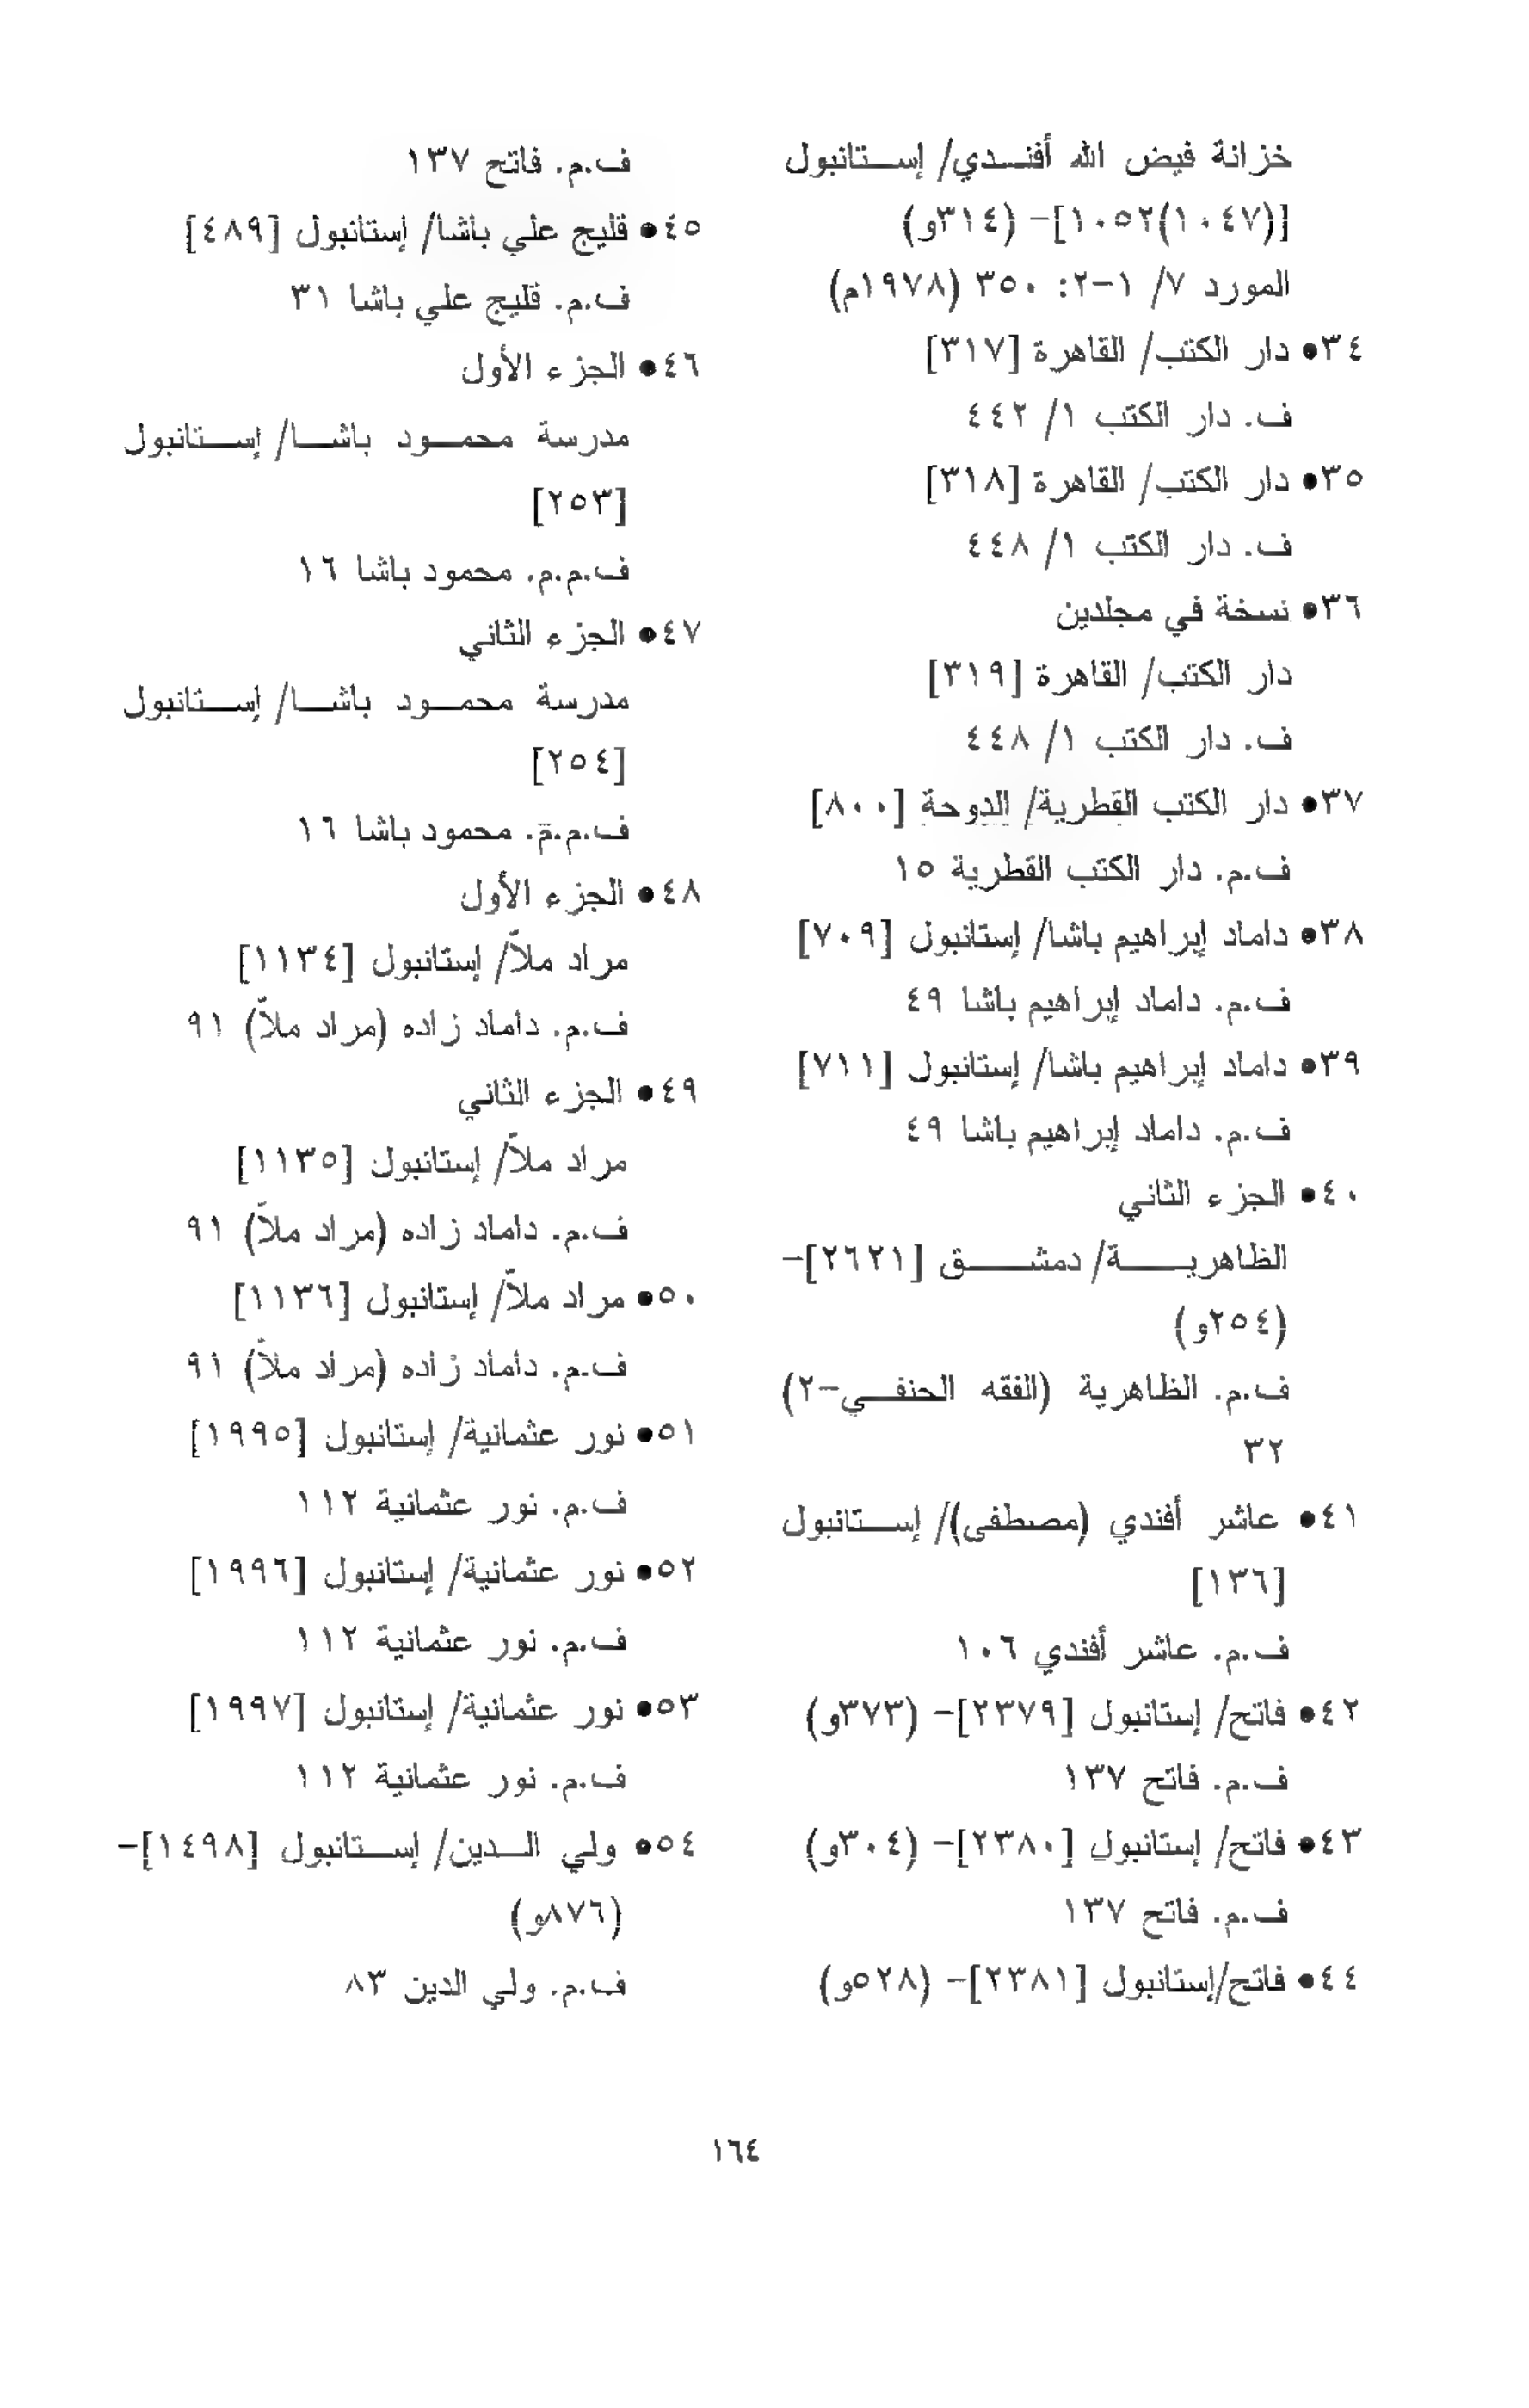 خزانة فيض الله أفندي/ إستانبول
[(١٠٤٧)١٠٥٢]- (٣١٤و)
المورد ٧/ ١-٢: ٣٥٠ (١٩٧٨م)
٣٤• دار الكتب/ القاهرة [٣١٧]
ف. دار الكتب ١/ ٤٤٢
٣٥• دار الكتب/ القاهرة [٣١٨]
ف. دار الكتب ١/ ٤٤٨
٣٦• نسخة في مجلدين
دار الكتب/ القاهرة [٣١٩]
ف. دار الكتب ١/ ٤٤٨
٣٧• دار الكتب القطرية/ الدوحة [٨٠٠]
ف.م. دار الكتب القطرية ١٥
٣٨• داماد إبراهيم باشا/ إستانبول [٧٠٩]
ف.م. داماد إبراهيم باشا ٤٩
٣٩• داماد إبراهيم باشا/ إستانبول [٧١١]
ف.م. داماد إبراهيم باشا ٤٩
٤٠• الجزء الثاني
الظاهرية/ دمشق [٢٦٢١]-
(٢٥٤و)
ف.م. الظاهرية (الفقه الحنفي-٢)
٣٢
٤١• عاشر أفندي (مصطفى)/ إستانبول
[١٣٦]
ف.م. عاشر أفندي ١٠٦
٤٢• فاتح/ إستانبول [٢٣٧٩]- (٣٧٣و)
ف.م. فاتح ١٣٧
٤٣• فاتح/ إستانبول [٢٣٨٠]- (٣٠٤و)
ف.م. فاتح ١٣٧
٤٤• فاتح/إستانبول [٢٣٨١]- (٥٢٨و)
ف.م. فاتح ١٣٧
٤٥• قليج علي باشا/ إستانبول [٤٨٩]
ف.م. قليج علي باشا ٣١
٤٦• الجزء الأول
مدرسة محمود باشا/ إستانبول
[٢٥٣]
ف.م.م. محمود باشا ١٦
٤٧• الجزء الثاني
مدرسة محمود باشا/ إستانبول
[٢٥٤]
ف.م.م. محمود باشا ١٦
٤٨• الجزء الأول
مراد ملاّ/ إستانبول [١١٣٤]
ف.م. داماد زاده (مراد ملاّ) ٩١
٤٩• الجزء الثاني
مراد ملاّ/ إستانبول [١١٣٥]
ف.م. داماد زاده (مراد ملاّ) ٩١
٥٠• مراد ملاّ/ إستانبول [١١٣٦]
ف.م. داماد زاده (مراد ملاّ) ٩١
٥١• نور عثمانية/ إستانبول [١٩٩٥]
ف.م. نور عثمانية ١١٢
٥٢• نور عثمانية/ إستانبول [١٩٩٦]
ف.م. نور عثمانية ١١٢
٥٣• نور عثمانية/ إستانبول [١٩٩٧]
ف.م. نور عثمانية ١١٢
٥٤• ولي الدين/ إستانبول [١٤٩٨]-
(٨٧٦و)
ف.م. ولي الدين ٨٣
١٦٤